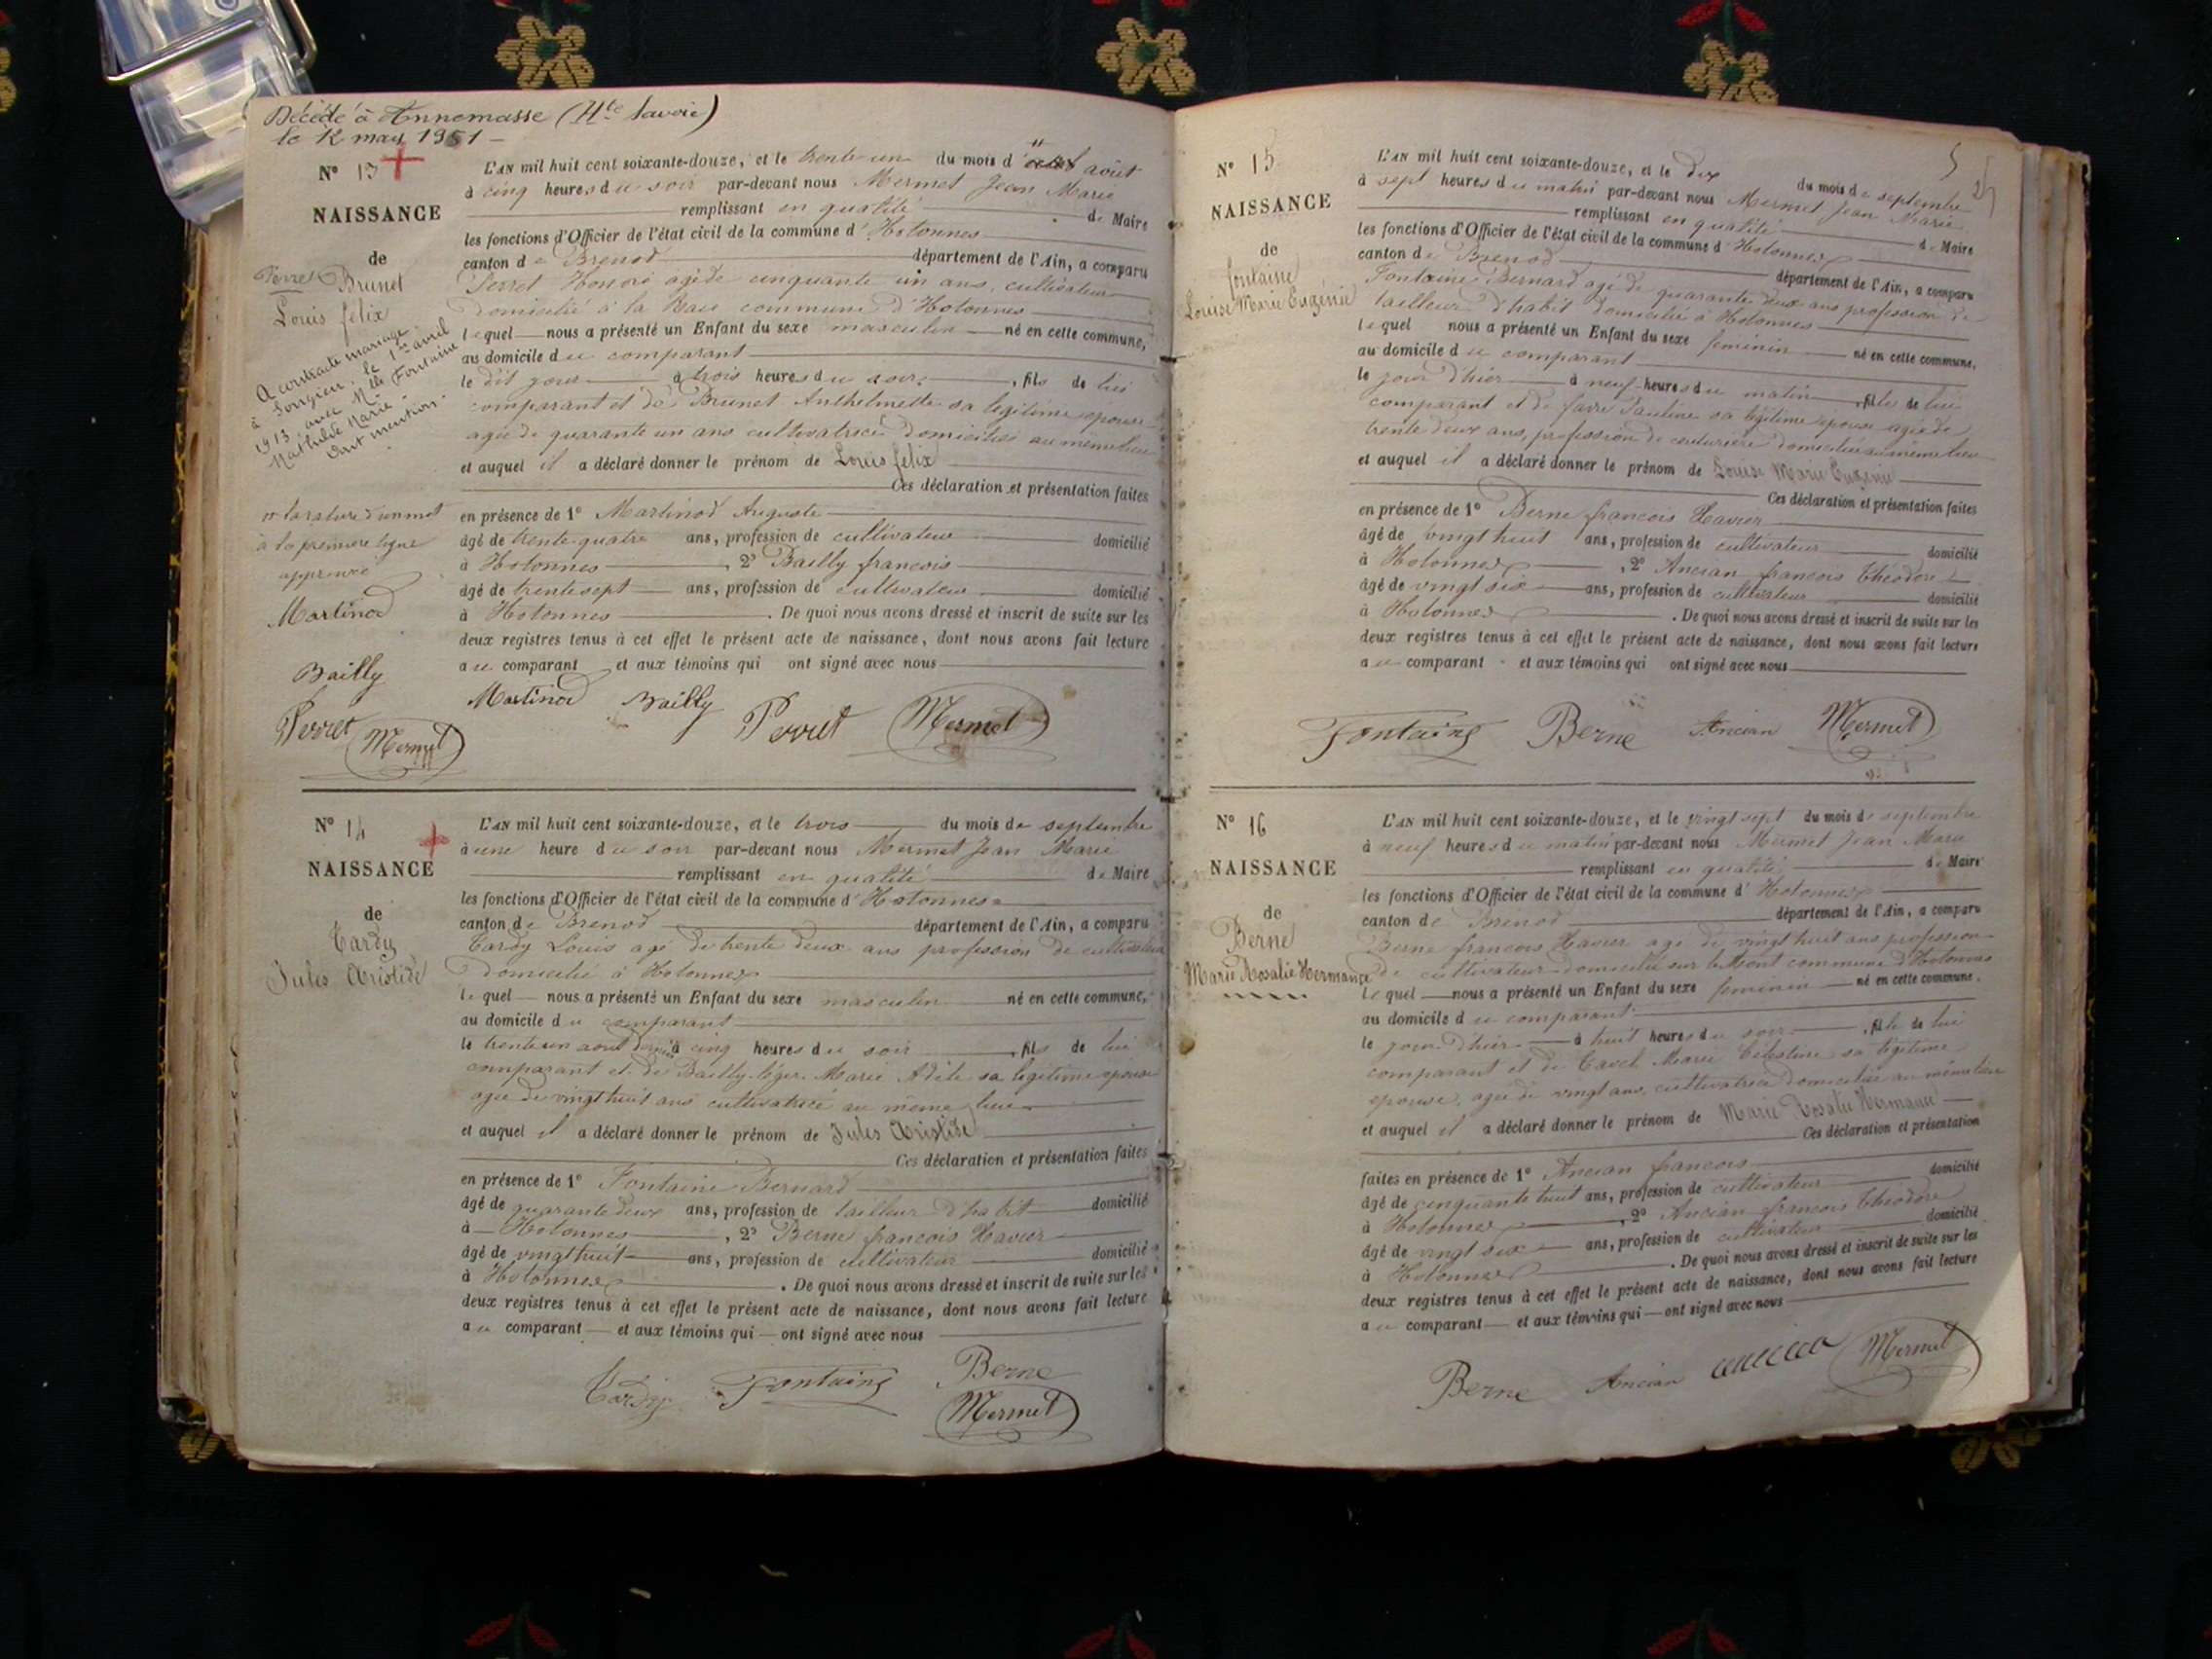 Décédé à Annemasse (Hte Savoie)
le 12 mars 1951
N° 13
NAISSANCE
de
Perret Brunet
Louis felix
A contracté mariage
à Songieu, le 1er avril
1913 avec Mlle Fontaine
Mathilde Marie.
Dont mention.
la rature d'un mot
à la première ligne
approuvé
Martinod
Bailly
Perret Mermet
L'AN mil huit cent soixante-douze, et le trente un du mois d' août
à cinq heures du soir par-devant nous Mermet Jean Marie
remplissant en qualité de Maire
les fonctions d'Officier de l'état civil de la commune d'Hotonnes
canton de Brenod département de l'Ain, a comparu
Perret Honoré agé de cinquante un ans, cultivateur
domicilié à la commune d'Hotonnes
lequel nous a présenté un Enfant du sexe masculin né en cette commune,
au domicile du comparant
le dit jour à trois heures du soir, fils de lui
comparant et de Brunet Anthelmette sa légitime épouse
agée de quarante un ans cultivatrice domiciliés au même lieu
et auquel il a déclaré donner le prénom de Louis felix
Ces déclaration et présentation faites
en présence de 1° Martinod Auguste
âgé de trente quatre ans, profession de cultivateur domicilié
à Hotonnes, 2° Bailly francois
âgé de trente sept ans, profession de cultivateur domicilié
à Hotonnes. De quoi nous avons dressé et inscrit de suite sur les
deux registres tenus à cet effet le présent acte de naissance, dont nous avons fait lecture
au comparant et aux témoins qui ont signé avec nous
Martinod Bailly Perret Mermet
N° 14
NAISSANCE
de
Tardy
Jules Aristide
L'AN mil huit cent soixante-douze, et le trois du mois de septembre
à une heure du soir par-devant nous Mermet Jean Marie
remplissant en qualité de Maire
les fonctions d'Officier de l'état civil de la commune d'Hotonnes
canton de Brenod département de l'Ain, a comparu
Tardy Louis agé de trente deux ans profession de cultivateur
domicilié à Hotonnes
lequel nous a présenté un Enfant du sexe masculin né en cette commune,
au domicile du comparant
le trente un aout dernier à cinq heures du soir, fils de lui
comparant et de Bailly-léger Marie Adèle sa légitime épouse
agée de vingt huit ans cultivatrice au même lieu
et auquel il a déclaré donner le prénom de Jules Aristide
Ces déclaration et présentation faites
en présence de 1° Fontaine Bernard
âgé de quarante deux ans, profession de tailleur d'habit domicilié
à Hotonnes, 2° Berne francois Xavier
âgé de vingt huit ans, profession de cultivateur domicilié
à Hotonnes. De quoi nous avons dressé et inscrit de suite sur les
deux registres tenus à cet effet le présent acte de naissance, dont nous avons fait lecture
au comparant et aux témoins qui ont signé avec nous
Tardy Fontaine Berne
Mermet
5
N° 15
NAISSANCE
de
fontaine
Louise Marie Eugénie
L'AN mil huit cent soixante-douze, et le dix du mois de septembre
à sept heures du matin par-devant nous Mermet Jean Marie
remplissant en qualité de Maire
les fonctions d'Officier de l'état civil de la commune d'Hotonnes
canton de Brenod département de l'Ain, a comparu
Fontaine Bernard agé de quarante deux ans profession de
tailleur d'habit domicilié à Hotonnes
lequel nous a présenté un Enfant du sexe feminin né en cette commune,
au domicile du comparant
le jour d'hier à neuf heures du matin, fille de lui
comparant et de favre Pauline sa légitime épouse agée de
trente deux ans, profession de couturière domiciliés au même lieu
et auquel il a déclaré donner le prénom de Louise Marie Eugénie
Ces déclaration et présentation faites
en présence de 1° Berne francois Xavier
âgé de vingt huit ans, profession de cultivateur domicilié
à Hotonnes, 2° Ancian francois Théodore
âgé de vingt six ans, profession de cultivateur domicilié
à Hotonnes. De quoi nous avons dressé et inscrit de suite sur les
deux registres tenus à cet effet le présent acte de naissance, dont nous avons fait lecture
au comparant et aux témoins qui ont signé avec nous
Fontaine Berne Ancian Mermet
N° 16
NAISSANCE
de
Berne
Marie Rosalie Hermance
L'AN mil huit cent soixante-douze, et le vingt sept du mois de septembre
à neuf heures du matin par-devant nous Mermet Jean Marie
remplissant en qualité de Maire
les fonctions d'Officier de l'état civil de la commune d'Hotonnes
canton de Brenod département de l'Ain, a comparu
Berne francois Xavier agé de vingt huit ans profession
de cultivateur domicilié sur le Mont commune d'Hotonnes
lequel nous a présenté un Enfant du sexe feminin né en cette commune,
au domicile du comparant
le jour d'hier à huit heures du soir, fille de lui
comparant et de Tavel Marie Célestine sa légitime
épouse, agée de vingt ans, cultivatrice domiciliés au même lieu
et auquel il a déclaré donner le prénom de Marie Rosalie Hermance
Ces déclaration et présentation
faites en présence de 1° Ancian francois
âgé de cinquante huit ans, profession de cultivateur domicilié
à Hotonnes, 2° Ancian francois Théodore
âgé de vingt six ans, profession de cultivateur domicilié
à Hotonnes. De quoi nous avons dressé et inscrit de suite sur les
deux registres tenus à cet effet le présent acte de naissance, dont nous avons fait lecture
au comparant et aux témoins qui ont signé avec nous
Berne Ancian Mermet